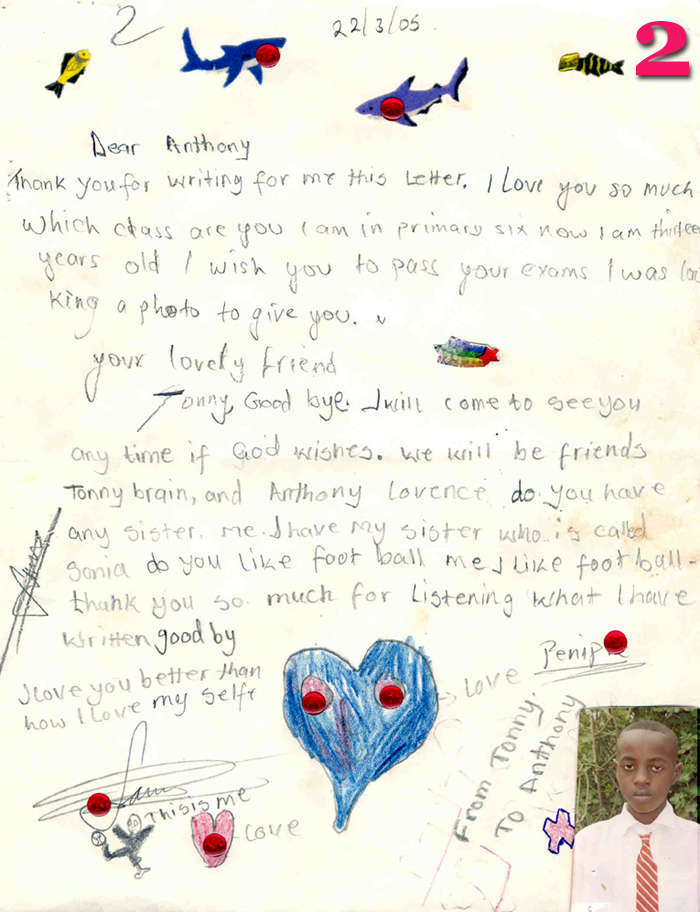 2
22/3/05.
2
Dear Anthony
Thank you for writing for me this Letter. I Love you so much
which class are you I am in primary six now I am thirteen
years old I wish you to pass your exams I was loo
king a photo to give you.
your lovely friend
Tonny, Good bye. I will come to see you
any time if God wishes. we will be friends
Tonny brain, and Anthony Lovence do you have
any sister. me I have my sister who is called
Sonia do you like foot ball me I like foot ball-
thank you so much for Listening what I have
written good by
I love you better than
how I Love my selft
Love
This is me
Love
From Tonny.
To Anthony